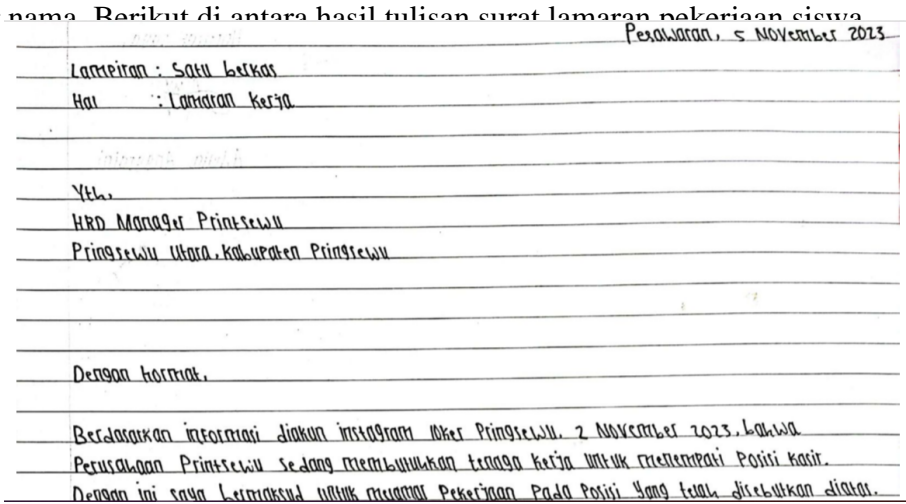 nama. Berikut di antara hasil tulisan surat lamaran pekerjaan siswa
Pesawaran, 5 November 2023
Lampiran : Satu berkas
Hal : Lamaran Kerja
Yth,
HRD Manager Printsewu
Pringsewu Utara, Kabupaten Pringsewu
Dengan hormat,
Berdasarkan informasi diakun instagram loker Pringsewu, 2 November 2023, bahwa
Perusahaan Printsewu sedang membutuhkan tenaga kerja untuk menempati Posisi Kasir.
Dengan ini saya bermaksud untuk melamar Pekerjaan Pada Posisi Yang telah disebutkan diatas.